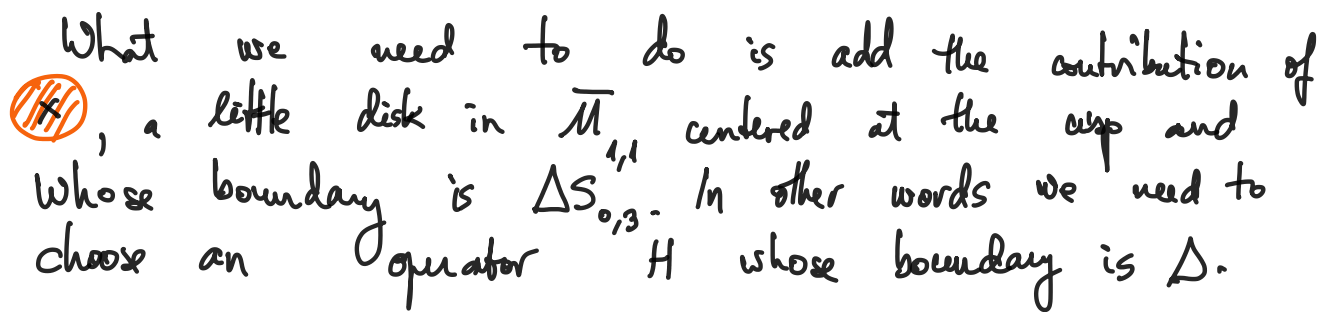 What we need to do is add the contribution of
x, a little disk in M̅₁,₁ centered at the cusp and
whose boundary is ΔS₀,₃. In other words we need to
choose an operator H whose boundary is Δ.